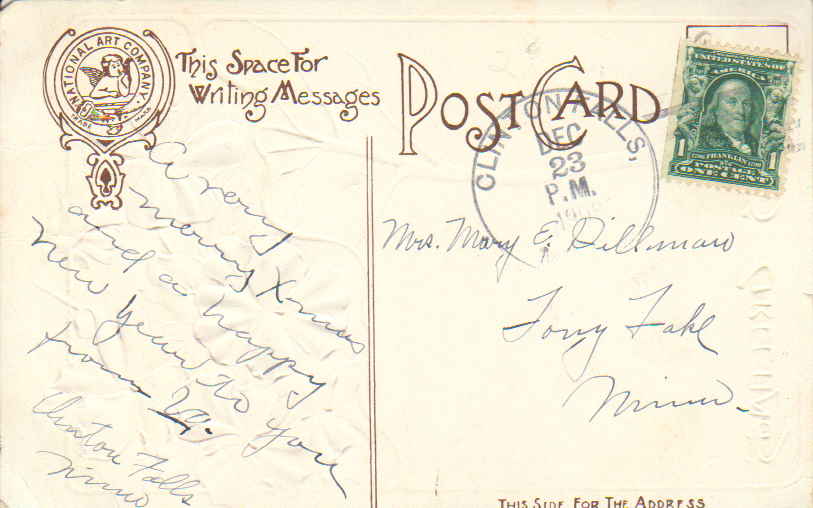 NATIONAL ART COMPANY.
TRADE MARK
This Space For
Writing Messages
POST CARD
UNITED STATES OF
AMERICA
1 FRANKLIN 1
POSTAGE
ONE CENT
CLINTON FALLS,
DEC
23
P.M.
A very
merry Xmas
and a happy
New Year to you
from
Clinton Falls
Minn
Mrs. Mary E. Dillman
Minn.
THIS SIDE FOR THE ADDRESS